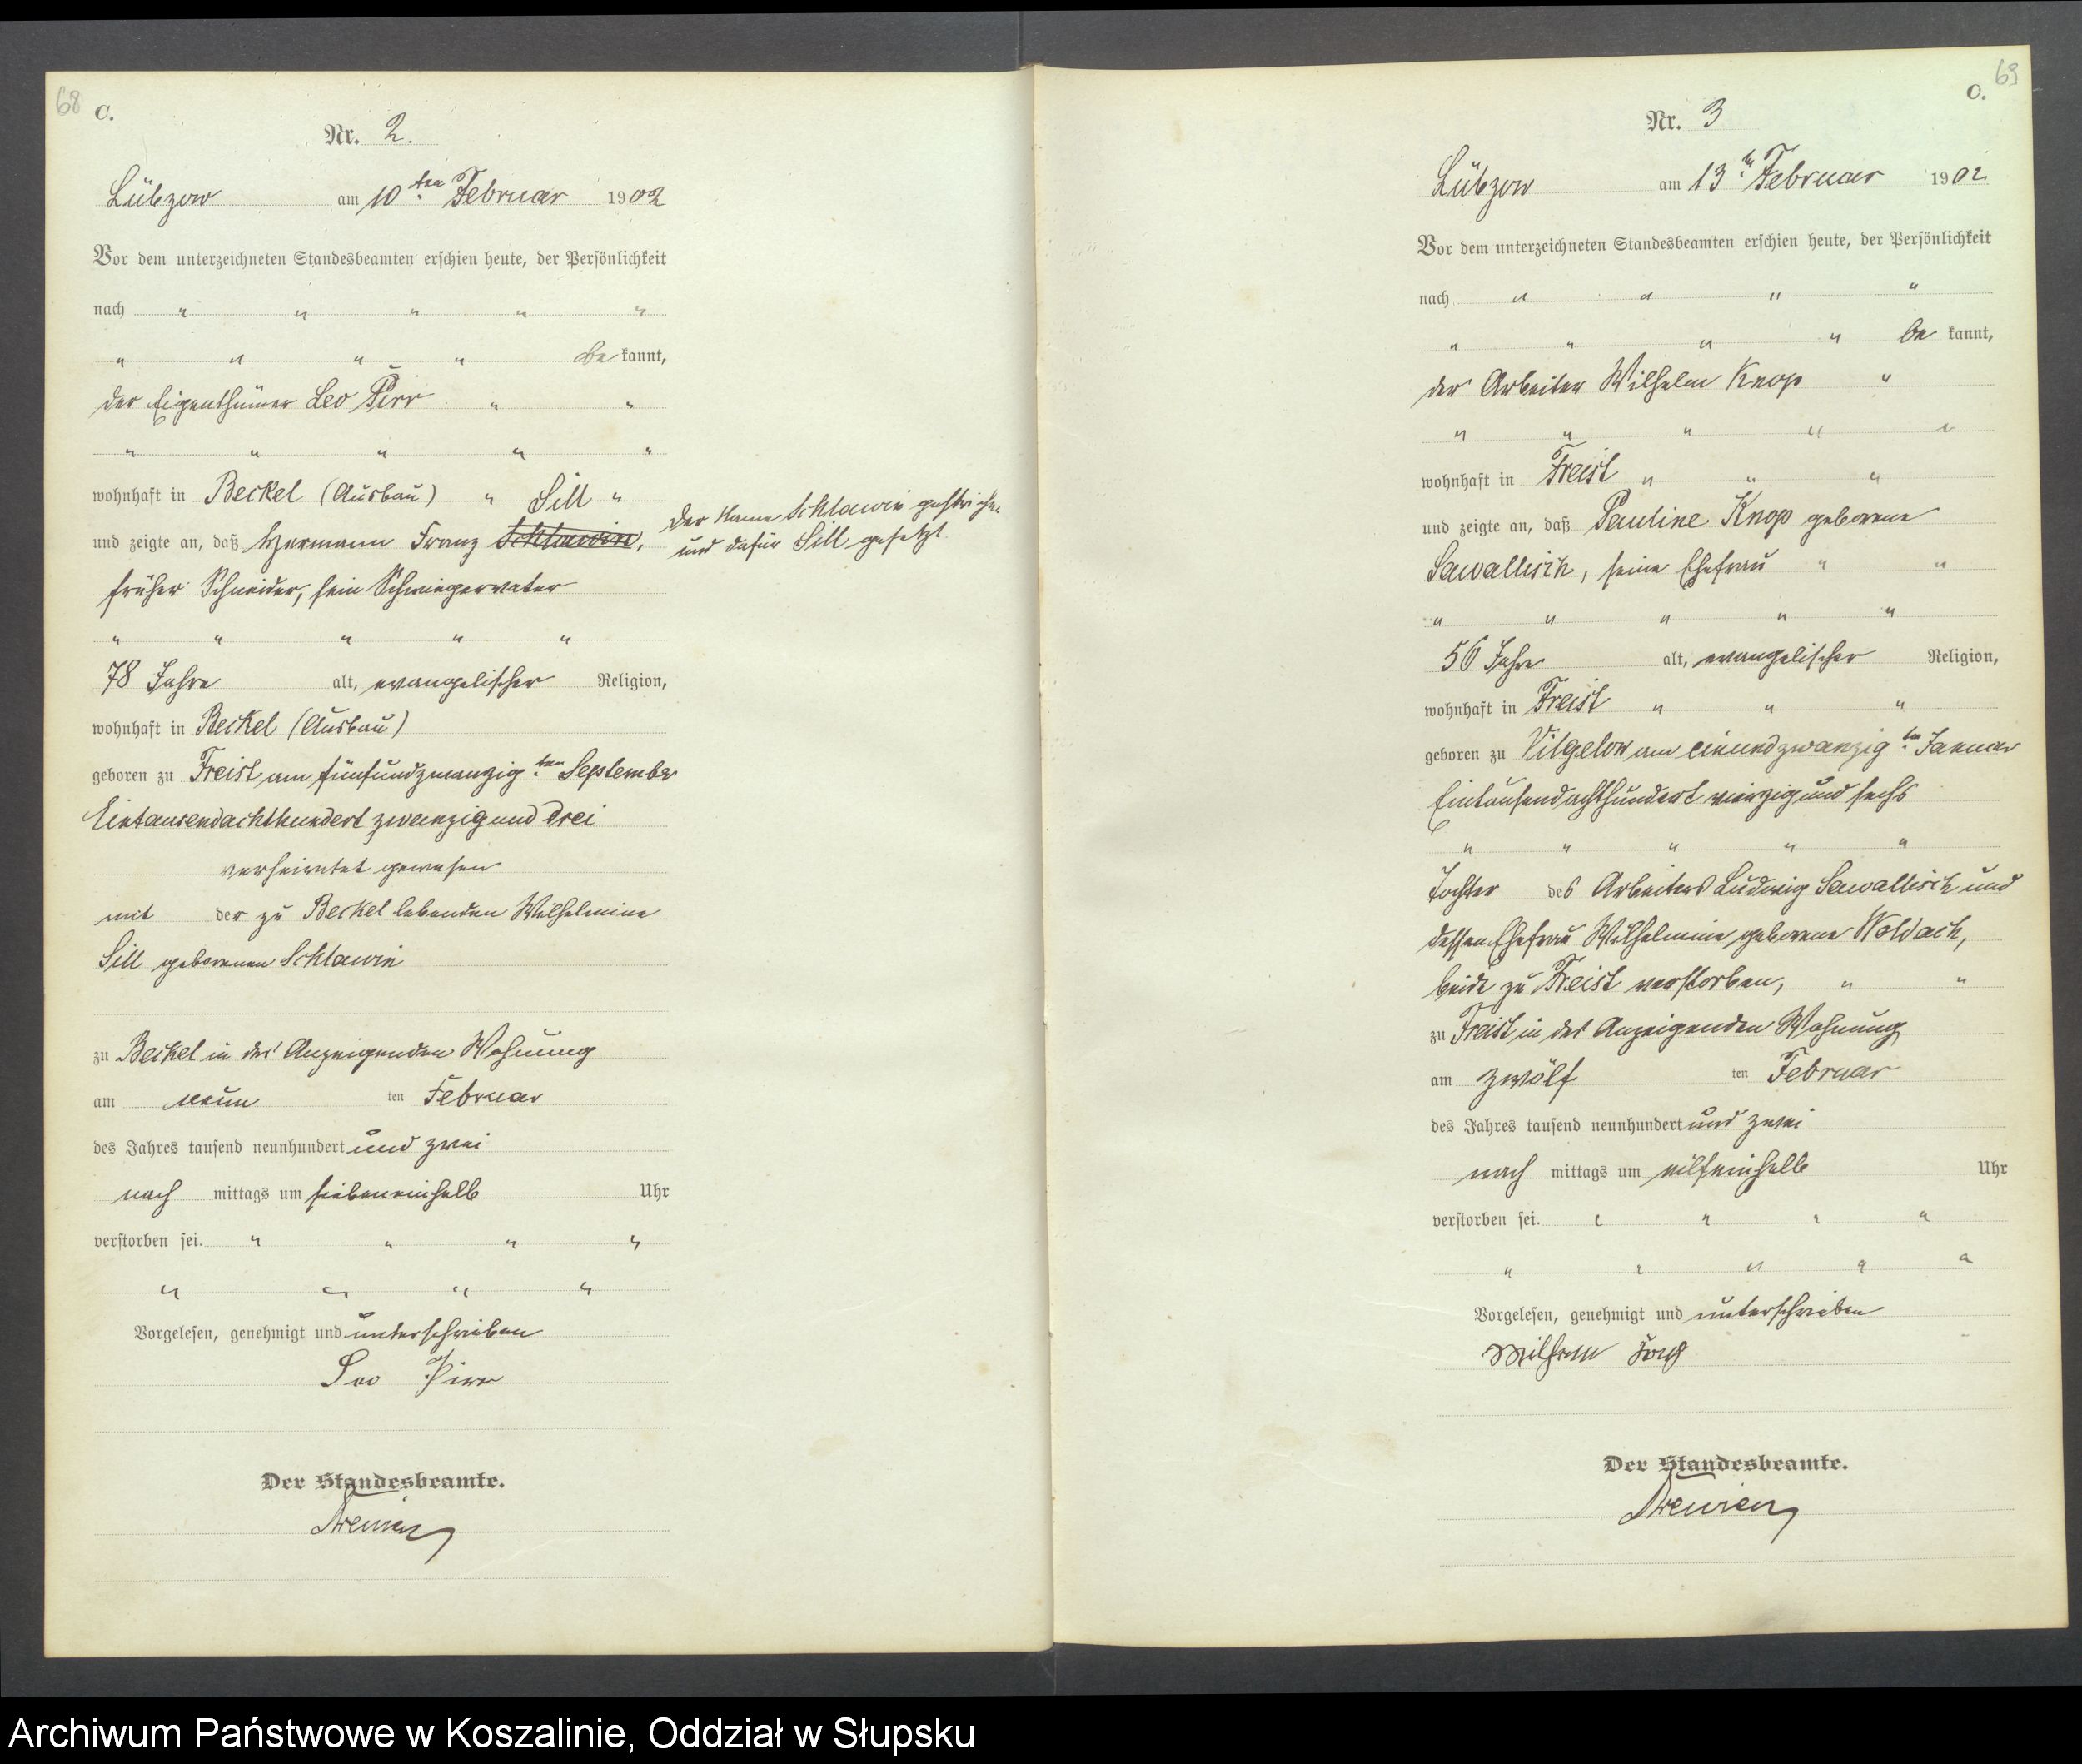 68
C.
Nr. 2.
Lübzow am 10ten Februar 1902
Vor dem unterzeichneten Standesbeamten erschien heute, der Persönlichkeit
nach " " " " "
" " " " be kannt,
der Eigenthümer Leo Pirr " "
" " " " "
wohnhaft in Beckel (Ausbau) " Sill "
und zeigte an, daß Hermann Franz Schlawin,
der Name Schlawin gestrichen
und dafür Sill gesetzt.
früher Schneider, sein Schwiegervater
" " " " "
78 Jahre alt, evangelischer Religion,
wohnhaft in Beckel (Ausbau)
geboren zu Freist am fünfundzwanzigten September
Eintausendachthundert zwanzig und drei
verheiratet gewesen
mit der zu Beckel lebenden Wilhelmine
Sill geborenen Schlawin
zu Beckel in des Anzeigenden Wohnung
am neun ten Februar
des Jahres tausend neunhundert und zwei
nach mittags um siebeneinhalb Uhr
verstorben sei. " " " "
" " " "
Vorgelesen, genehmigt und unterschrieben
Leo Pirr
Der Standesbeamte.
69
C.
Nr. 3
Lübzow am 13ten Februar 1902
Vor dem unterzeichneten Standesbeamten erschien heute, der Persönlichkeit
nach " " " "
" " " " be kannt,
der Arbeiter Wilhelm Knop "
" " " " "
wohnhaft in Freist " " "
und zeigte an, daß Pauline Knop geborene
Sawallisch, seine Ehefrau " "
" " " " "
56 Jahre alt, evangelischer Religion,
wohnhaft in Freist " " "
geboren zu Vilgelow am einundzwanzigten Januar
Eintausendachthundert vierzig und sechs
" " " " "
Tochter des Arbeiters Ludwig Sawallisch und
dessen Ehefrau Wilhelmine geborene Woldach,
beide zu Freist verstorben, " "
zu Freist in des Anzeigenden Wohnung
am zwölf ten Februar
des Jahres tausend neunhundert und zwei
nach mittags um eilfeinhalb Uhr
verstorben sei. " " " "
" " " " "
Vorgelesen, genehmigt und unterschrieben
Wilhelm Knop
Der Standesbeamte.
Archiwum Państwowe w Koszalinie, Oddział w Słupsku